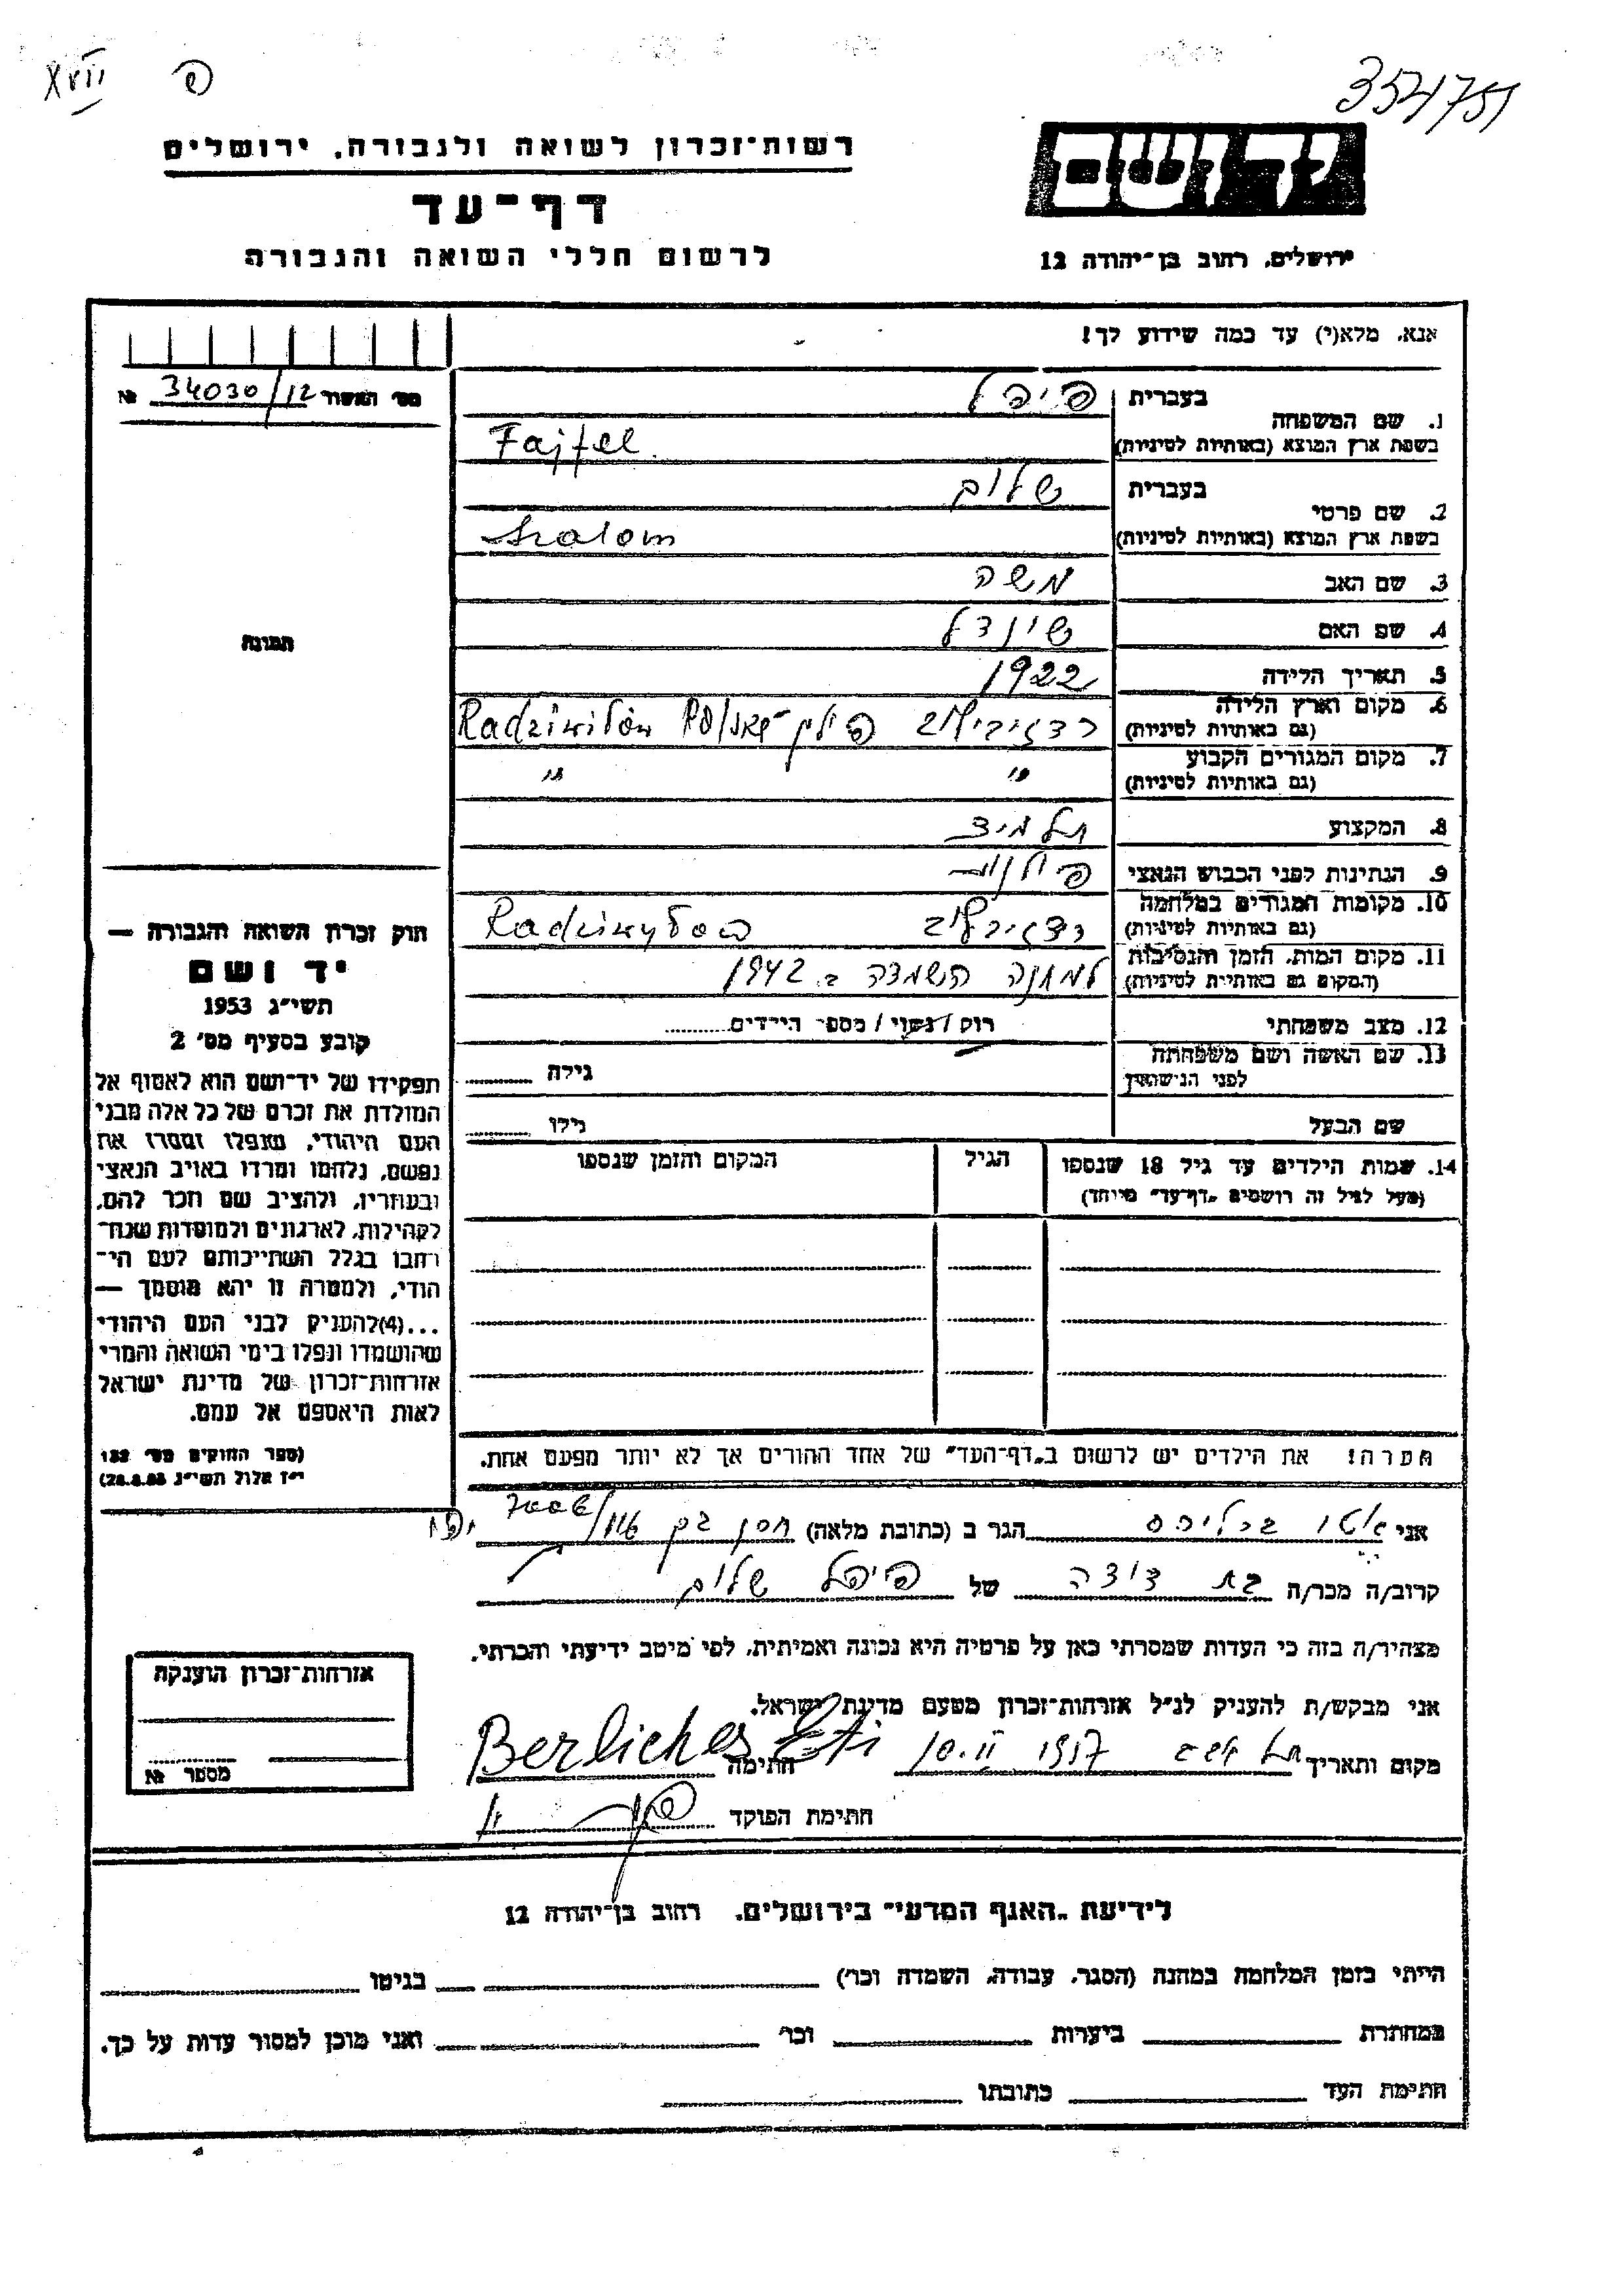 XVII פ 354751
רשות־זכרון לשואה ולגבורה, ירושלים
יד ושם
דף־עד
לרשום חללי השואה והגבורה
ירושלים, רחוב בן־יהודה 12
אנא, מלא(י) עד כמה שידוע לך!
מס׳ האשור 34030/12 №
1. שם המשפחה בעברית פיפל
בשפת ארץ המוצא (באותיות לטיניות) Fajfel
2. שם פרטי בעברית שלום
בשפת ארץ המוצא (באותיות לטיניות) Szalom
3. שם האב משה
4. שם האם שינדל
5. תאריך הלידה 1922
6. מקום וארץ הלידה
(גם באותיות לטיניות) פולין Radziwilów
7. מקום המגורים הקבוע
(גם באותיות לטיניות) " "
8. המקצוע תלמיד
9. הנתינות לפני הכבוש הנאצי פולנית
10. מקומות המגורים במלחמה
(גם באותיות לטיניות)
11. מקום המות, הזמן והנסיבות
(המקום גם באותיות לטיניות) למחנה השמדה ב. 1942
12. מצב משפחתי רוק / נשוי / מספר הילדים
13. שם האשה ושם משפחתה
לפני הנישואין גילה
שם הבעל גילו
14. שמות הילדים עד גיל 18 שנספו הגיל המקום והזמן שנספו
(מעל לגיל זה רושמים "דף־עד" מיוחד)
תמונה
חוק זכרון השואה והגבורה —
יד ושם
תשי״ג 1953
קובע בסעיף מס׳ 2
תפקידו של יד־ושם הוא לאסוף אל
המולדת את זכרם של כל אלה מבני
העם היהודי, שנפלו ומסרו את
נפשם, נלחמו ומרדו באויב הנאצי
ובעוזריו, ולהציב שם וזכר להם,
לקהילות, לארגונים ולמוסדות שנח־
רבו בגלל השתייכותם לעם הי־
הודי, ולמטרה זו יהא מוסמך —
...(4)להעניק לבני העם היהודי
שהושמדו ונפלו בימי השואה והמרי
אזרחות־זכרון של מדינת ישראל
לאות היאספם אל עמם.
(ספר החוקים מס׳ 132
י״ז אלול תשי״ג 28.8.53)
הערה! את הילדים יש לרשום ב„דף־העד" של אחד ההורים אך לא יותר מפעם אחת.
אני אטי ברליכס הגר ב (כתובת מלאה) חסן בק יפו
קרוב/ה מכר/ה בת דודה של פיפל שלום
מצהיר/ה בזה כי העדות שמסרתי כאן על פרטיה היא נכונה ואמיתית, לפי מיטב ידיעתי והכרתי.
אני מבקש/ת להעניק לנ״ל אזרחות־זכרון מטעם מדינת ישראל.
מקום ותאריך תל אביב 10.II 1957 חתימה Berliches Eti
חתימת הפוקד
אזרחות־זכרון הוענקה
מספר №
לידיעת „האגף המדעי" בירושלים, רחוב בן־יהודה 12
הייתי בזמן המלחמה במחנה (הסגר, עבודה, השמדה וכו׳) בגיטו
במחתרת ביערות וכו׳ ואני מוכן למסור עדות על כך.
חתימת העד כתובתו